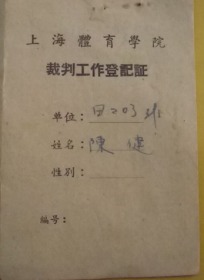 上海體育學院
裁判工作登記証
单位：田203班
姓名：陳健
性别：
编号：